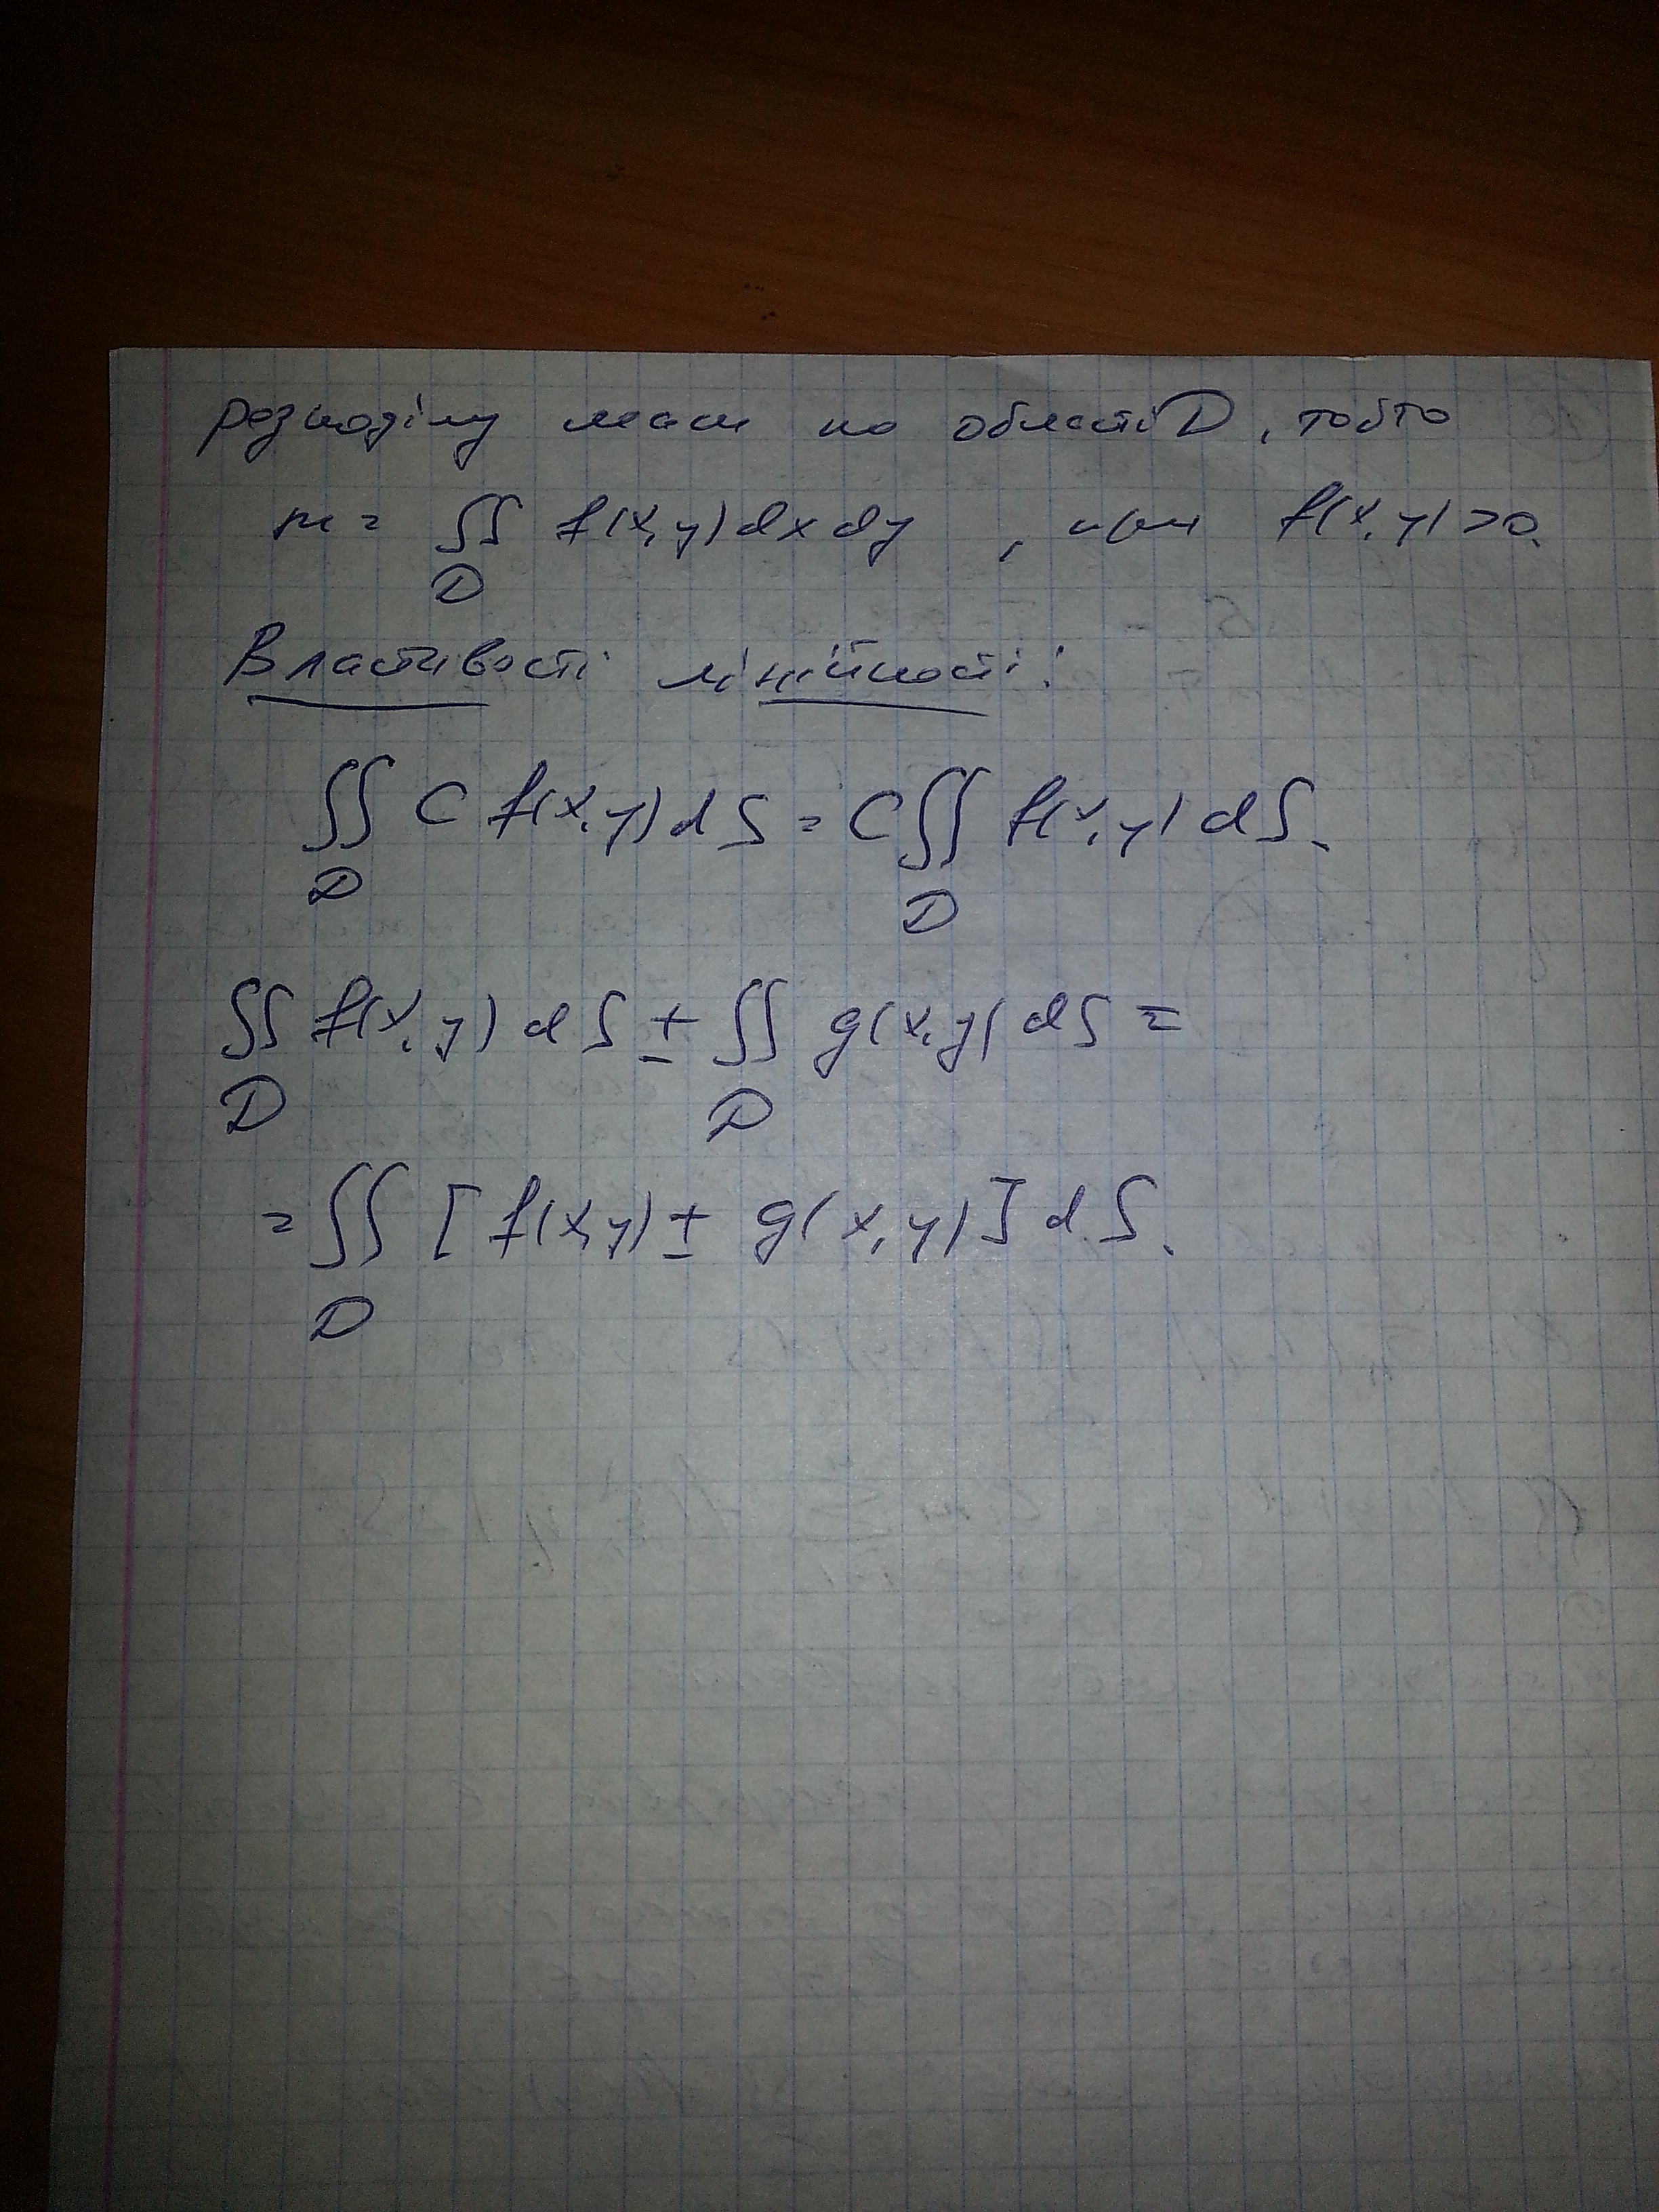 розподілу мас по області D, тобто
m = ∬ f(x,y)dxdy, при f(x,y)>0.
D
Властивості лінійності:
∬ C f(x,y)dS = C∬ f(x,y)dS.
D D
∬ f(x,y)dS ± ∬ g(x,y)dS =
D D
= ∬ [f(x,y) ± g(x,y)]dS.
D